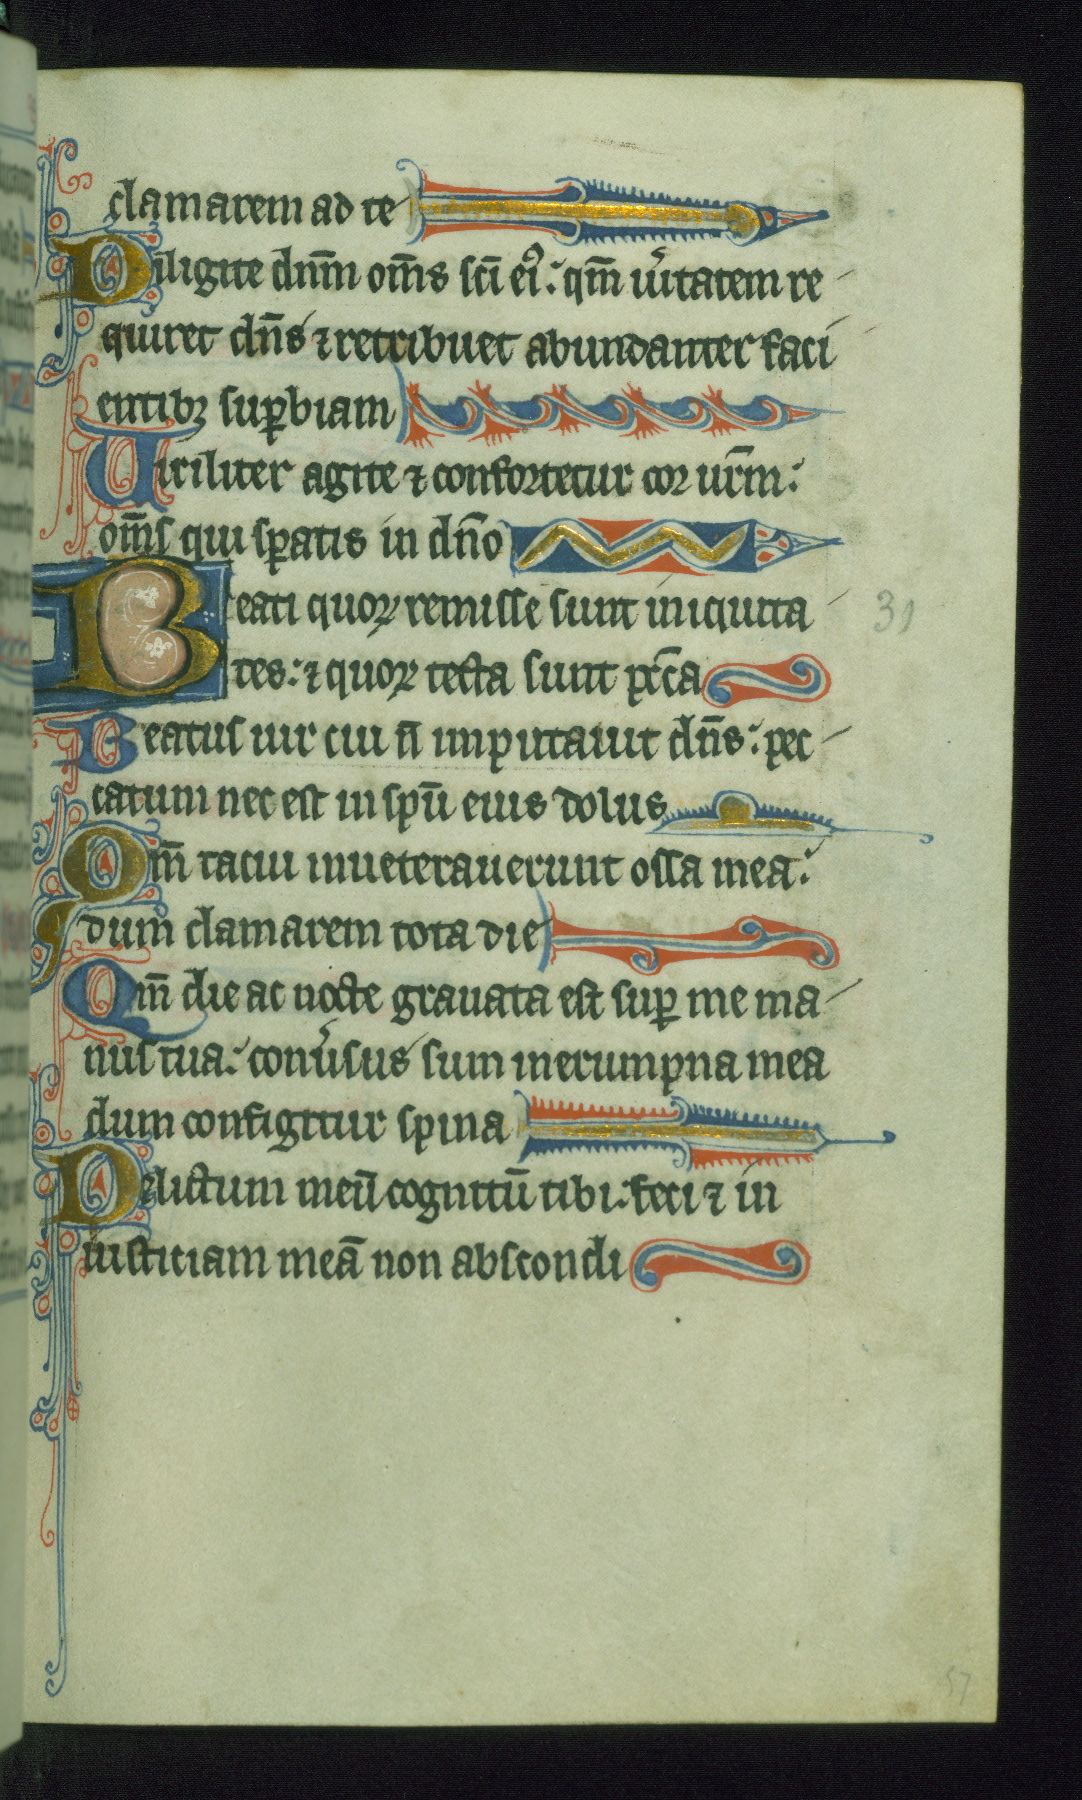 clamarem ad te
Diligite dn̄m om̄s sc̄i ei᷒: qm̄ ūitatem re
quiret dn̄s ⁊ retribuet abundanter faci
entibꝫ suꝑbiam
Uiriliter agite ⁊ confortetur cor ur̄m:
om̄s qui sꝑatis in dn̄o
Beati quoꝝ remisse sunt iniquita 31
tes: ⁊ quoꝝ tecta sunt pc̄ca
Beatus uir cui n̄ imputauit dn̄s: pec
catum nec est in spū eius dolus
Qm̄ tacui inueterauerunt ossa mea:
dum clamarem tota die
Qm̄ die ac nocte grauata est suꝑ me ma
nus tua: conūsus sum in erumpna mea
dum configitur spina
Delictum meū cognitū tibi: feci ⁊ in
iusticiam meā non abscondi
57